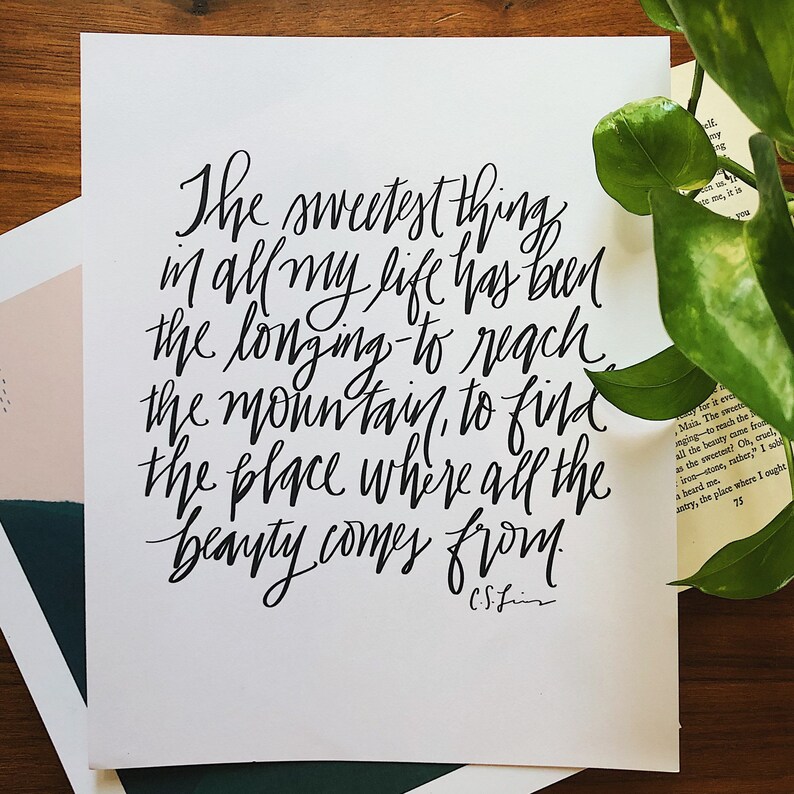 The sweetest thing
in all my life has been
the longing-to reach
the mountain, to find
the place where all the
beauty comes from.
C.S. Lewis
elf.
my
ng
een us. If
ate me, it is
you
ready for it eve
, Maia. The sweetes
onging—to reach the M
all the beauty came from
as the sweetest? Oh, cruel,
iron—stone, rather," I sobb
n heard me.
untry, the place where I ought
75